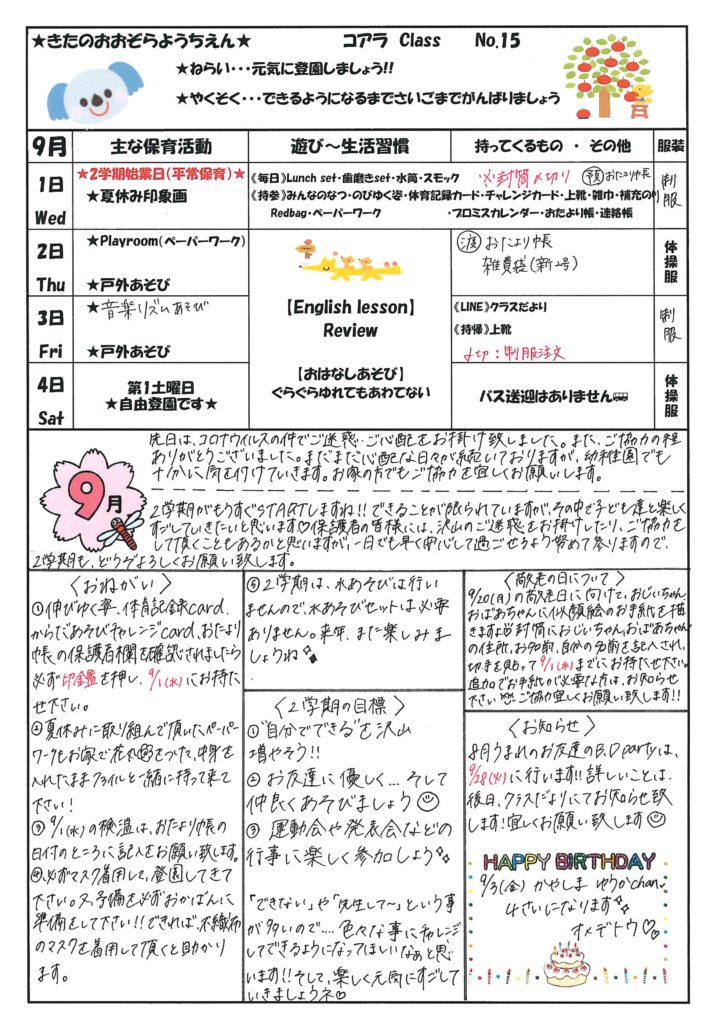 ★きたのおおぞらようちえん★　コアラ Class　No.15
★ねらい・・・元気に登園しましょう!!
★やくそく・・・できるようになるまでさいごまでがんばりましょう
9月　主な保育活動　遊び～生活習慣　持ってくるもの ・ その他　服装
1日 Wed
★2学期始業日(平常保育)★
★夏休み印象画
《毎日》Lunch set・歯磨きset・水筒・スモック
※封筒〆切り　預 おたより帳
《持参》みんなのなつ・のびゆく姿・体育記録カード・チャレンジカード・上靴・雑巾・補充のり
Redbag・ペーパーワーク　・プロミスカレンダー・おたより帳・連絡帳
制服
2日 Thu
★Playroom(ペーパーワーク)
★戸外あそび
渡 おたより帳
雑費袋(新2号)
体操服
3日 Fri
★音楽リズムあそび
★戸外あそび
【English lesson】
Review
【おはなしあそび】
ぐらぐらゆれてもあわてない
《LINE》クラスだより
《持帰》上靴
〆切：制服注文
制服
4日 Sat
第1土曜日
★自由登園です★
バス送迎はありません
体操服
9月
先日は、コロナウイルスの件でご迷惑…ご心配をお掛け致しました。また、ご協力の程
ありがとうございました。まだまだ心配な日々が続いておりますが、幼稚園でも
十分に気を付けていきます。お家の方でもご協力を宜しくお願いします。
2学期がもうすぐSTARTしますね!!できることが限られていますが、その中で子ども達と楽しく
すごしていきたいと思います♡保護者の皆様には、沢山のご迷惑をお掛けしたり、ご協力を
して頂くこともあるかと思いますが、一日でも早く安心して過ごせるよう努めて参りますので、
2学期も、どうぞよろしくお願い致します。
〈おねがい〉
①伸びゆく姿、体育記録card、
からだあそびチャレンジcard、おたより
帳の保護者欄を確認されましたら
必ず印鑑を押し、9/1(水)にお持た
せ下さい。
②夏休みに取り組んで頂いたペーパー
ワークもお家で花丸をつけて、中身を
入れたままファイルと一緒に持って来て
下さい！
③9/1(水)の検温は、おたより帳の
日付のところに記入をお願い致します。
④必ずマスク着用して、登園してきて
下さい。又、予備を必ずおかばんに
準備をして下さい!!できれば、不織布
のマスクを着用して頂くと助かり
ます。
⑤2学期は、水あそびは行い
ませんので、水あそびセットは必要
ありません。来年、また楽しみま
しょうね
〈2学期の目標〉
①"自分でできる"を沢山
増やそう!!
②お友達に優しく…そして
仲良くあそびましょう
③運動会や発表会などの
行事に楽しく参加しよう
「できない」や「先生して～」という事
が多いので….色々な事にチャレンジ
してできるようになってほしいなぁと思
います!!そして、楽しく元気にすごして
いきましょうネ♡
〈敬老の日について〉
9/20(月)の敬老日に向けて、おじいちゃん
おばあちゃんに似顔絵のお手紙を描
きますよ封筒におじいちゃん、おばあちゃん
の住所、お名前、自分の名前を記入され、
切手を貼って9/1(水)までにお持たせ下さい。
追加でお手紙が必要な方は、お知らせ
下さい ご協力宜しくお願い致します!!
〈お知らせ〉
8月うまれのお友達のB.D partyは、
9/28(火)に行います!!詳しいことは、
後日、クラスだよりにてお知らせ致
します！宜しくお願い致します
HAPPY BIRTHDAY
9/3(金) かやしま ゆうかchan
4さいになります
オメデトウ♡